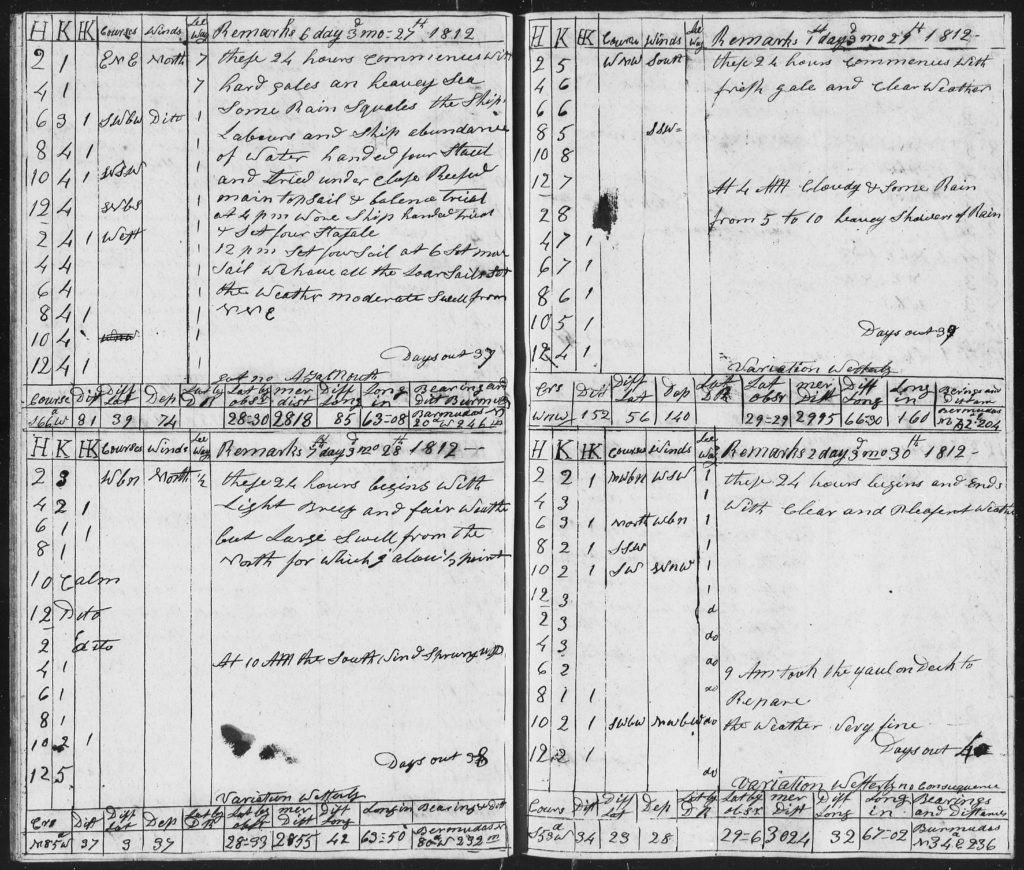 H K HK Courses Winds Lee Way Remarks 6 day 3d mo = 27th 1812
2 1 ENE North 7 these 24 hours Commences with
4 1 7 hard gales an heavey Sea
Some Rain Squales the Ship
6 3 1 SWbW Dito 1 Labours and Ship abundance
8 4 1 1 of Water handed four
10 4 1 WSW 1 and tried under Close Reefed
main topsail & balence
12 4 SWbS 1 at 4 pm Wore Ship handed
2 4 1 West 1 & Set four
12 pm Set four Sail at 6 Set
4 4 1 Sail We have all the Sails Set
6 4 1 the Weather moderate Swell from
8 4 1 1 NNE
10 4 1
12 4 1 1 Days out 37
got no
Course Dist Diff Lat Dep Lat by DR Lat by obsr mer dist Diff Long Long in Bearing and dist Burmudas
S66W 81 39 74 28=30 2818 85 63=08 Barmudas N 20 W 246 m
H K HK Courses Winds Lee Way Remarks 7th day 3d mo 28th 1812
2 3 WbN North ½ these 24 hours begins With
4 2 1 Light Breez and fair Weather
6 1 1 but Large Swell from the
8 1 1 North for which I alow ½ point
10 Calm
12 Dito
2 dito
4 1 At 10 AM the South Wind Sprung up
6 1
8 1
10 2 1
12 5 Days out 38
Variation Westerly
Crs Dist Diff Lat Dep Lat by DR Lat by obsr mer Dist Diff Long Long in Bearing & dist
N85W 37 3 37 28=33 2855 42 63=50 Bermudas N 80 W 232 m
H K HK Course Winds Lee Way Remarks 1st day 3d mo 29th 1812
2 5 WNW South these 24 hours Commences With
4 6 fresh gale and Clear Weather
6 6
8 5 SSW=
10 8
12 7 At 4 AM Cloudy & Some Rain
2 8 from 5 to 10 heavey Showers of Rain
4 7 1
6 7 1
8 6 1
10 5 1 Days out 39
12 4 1
Variation Westerly
Crs Dist Diff Lat Dep Lat DR Lat obsr mer Dist Diff Long Long in Berings and Distan
WNW 152 56 140 29=29 2995 66=30 160 Burmudas N 204
H K HK Courses Winds Lee Way Remarks 2 day 3d mo 30th 1812
2 2 1 NWbN WSW 1 these 24 hours begins and Ends
4 3 1 With Clear and Pleasent Weather
6 3 1 North WbN 1
8 2 1 SSW 1
10 2 1 SW WNW 1
12 3 1
2 3 do
4 3 do
6 2 do 9 Am took the yaul on Deck to
8 1 1 do Repare
10 2 1 SWbW NWbW do the Weather Very fine
12 2 1 do Days out 40
Variation Westerly no Consequence
Cours Dist Diff Lat Dep Lat by DR Lat by obsr mer Dist Diff Long Long in Bearings and Distances
S53W 34 23 28 29=6 3024 32 67=02 Burmudas N 34 E 236